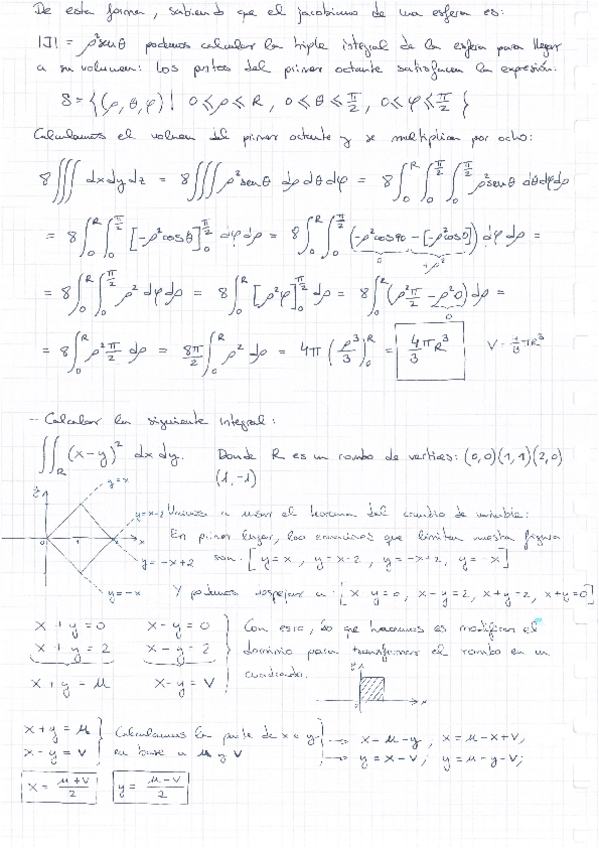 De esta forma, sabiendo que el jacobiano de una esfera es:
|J| = ρ²senθ podemos calcular la triple integral de la esfera para llegar
a su volumen: Los puntos del primer octante satisfacen la expresión:
S = {(ρ, θ, φ) | 0 ≤ ρ ≤ R, 0 ≤ θ ≤ π/2, 0 ≤ φ ≤ π/2}
Calculamos el volumen del primer octante y se multiplica por ocho:
8∭ dx dy dz = 8∭ ρ²senθ dρ dθ dφ = 8∫₀^R ∫₀^{π/2} ∫₀^{π/2} ρ²senθ dθ dφ dρ
= 8∫₀^R ∫₀^{π/2} [-ρ²cosθ]₀^{π/2} dφ dρ = 8∫₀^R ∫₀^{π/2} (-ρ²cos90 - [-ρ²cos0]) dφ dρ =
0 +ρ²
= 8∫₀^R ∫₀^{π/2} ρ² dφ dρ = 8∫₀^R [ρ²φ]₀^{π/2} dρ = 8∫₀^R (ρ² π/2 - ρ²0) dρ =
0
= 8∫₀^R ρ² π/2 dρ = 8π/2 ∫₀^R ρ² dρ = 4π (ρ³/3)₀^R = 4/3 πR³ V = 4/3 πR³
- Calcular la siguiente integral:
∬_R (x-y)² dx dy. Donde R es un rombo de vértices: (0,0)(1,1)(2,0)
(1,-1)
y=x
y=x-2 Vamos a usar el teorema del cambio de variable:
0 1 x En primer lugar, las ecuaciones que limitan nuestra figura
y=-x+2 son: [y=x, y=x-2, y=-x+2, y=-x]
y=-x Y podemos despejar a: [x-y=0, x-y=2, x+y=2, x+y=0]
x+y=0 x-y=0 Con esto, lo que hacemos es modificar el
x+y=2 x-y=2 dominio para transformar el rombo en un
x+y=u x-y=v cuadrado.
x+y=u Calculamos la parte de x e y → x=u-y, x=u-x+v;
x-y=v en base u y v → y=x-v; y=u-y-v;
x = (u+v)/2 y = (u-v)/2